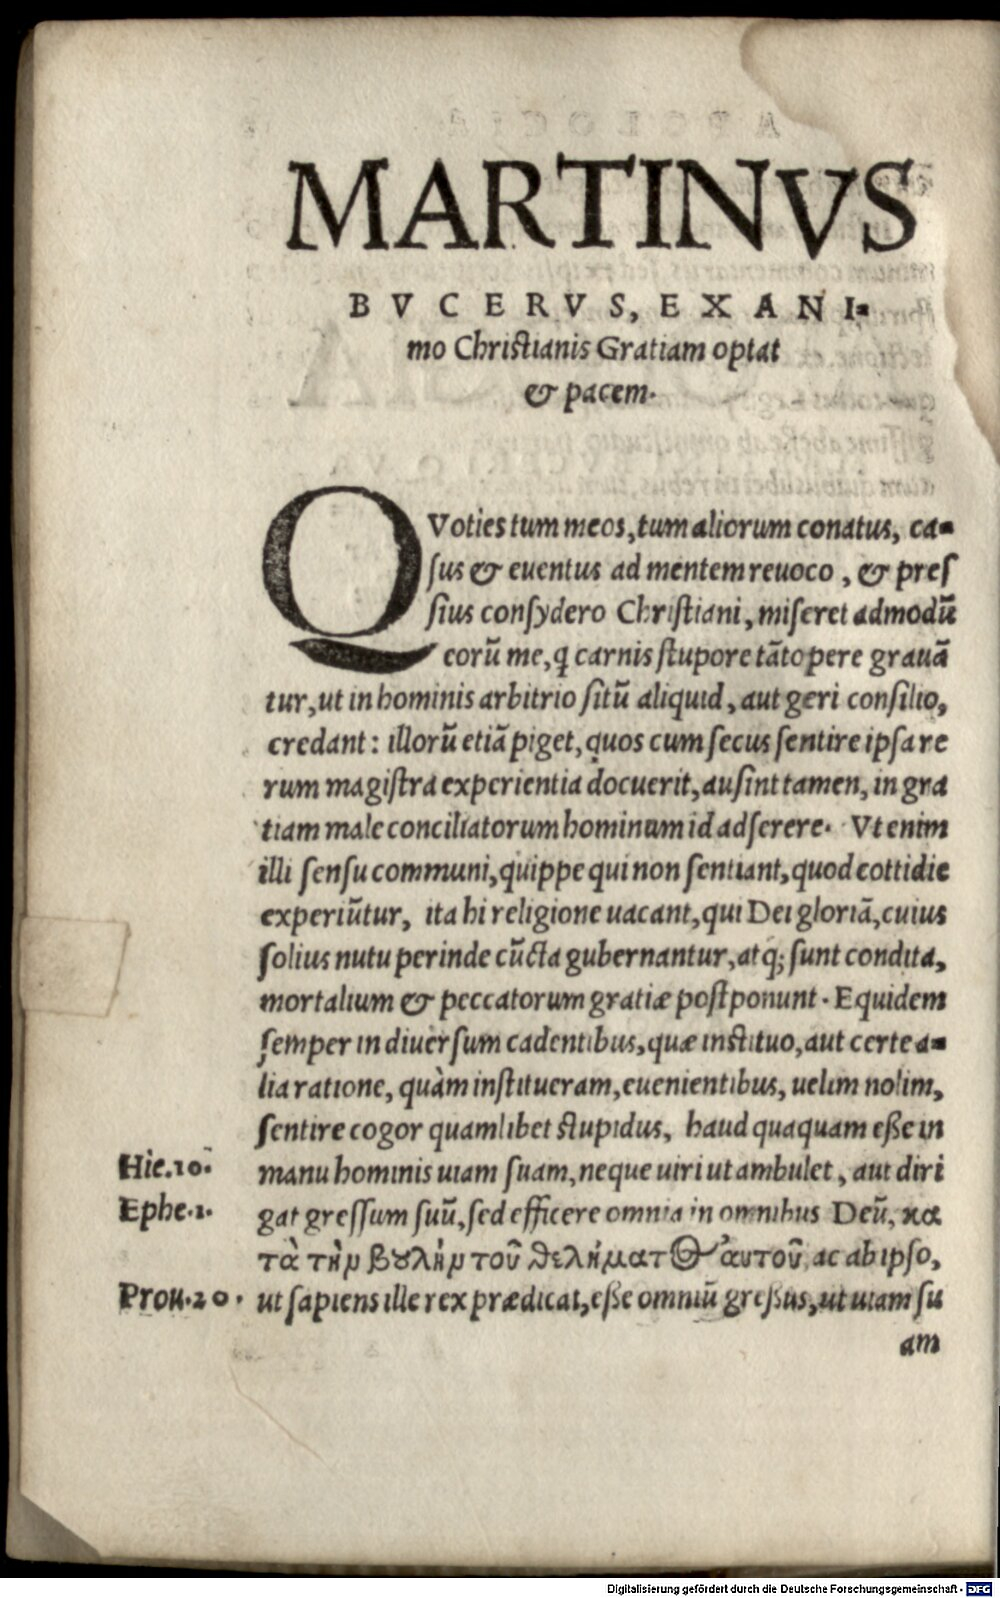 MARTINVS
BVCERVS, EX ANI-
mo Christianis Gratiam optat
& pacem.
QVoties tum meos, tum aliorum conatus, ca-
ſus & euentus ad mentem reuoco, & preſ
ſius conſydero Chriſtiani, miſeret admodū
eorū me, ꝗ carnis ſtupore tātopere grauā
tur, ut in hominis arbitrio ſitū aliquid, aut geri conſilio,
credant: illorū etiā piget, quos cum ſecus ſentire ipſa re
rum magiſtra experientia docuerit, auſint tamen, in gra
tiam male conciliatorum hominum id adſerere. Vt enim
illi ſenſu communi, quippe qui non ſentiant, quod cottidie
experiūtur, ita hi religione uacant, qui Dei gloriā, cuius
ſolius nutu perinde cūcta gubernantur, atq; ſunt condita,
mortalium & peccatorum gratiæ poſtponunt. Equidem
ſemper in diuerſum cadentibus, quæ inſtituo, aut certe a-
lia ratione, quàm inſtitueram, euenientibus, uelim nolim,
ſentire cogor quamlibet ſtupidus, haud quaquam eſſe in
Hie.10. manu hominis uiam ſuam, neque uiri ut ambulet, aut diri
Ephe.1. gat greſſum ſuū, ſed efficere omnia in omnibus Deū, κα
τὰ τὴν βουλὴν τοῦ θελήματος αὐτοῦ, ac ab ipſo,
Prou.20. ut ſapiens ille rex prædicat, eſſe omniū greſſus, ut uiam ſu
am
Digitalisierung gefördert durch die Deutsche Forschungsgemeinschaft - DFG